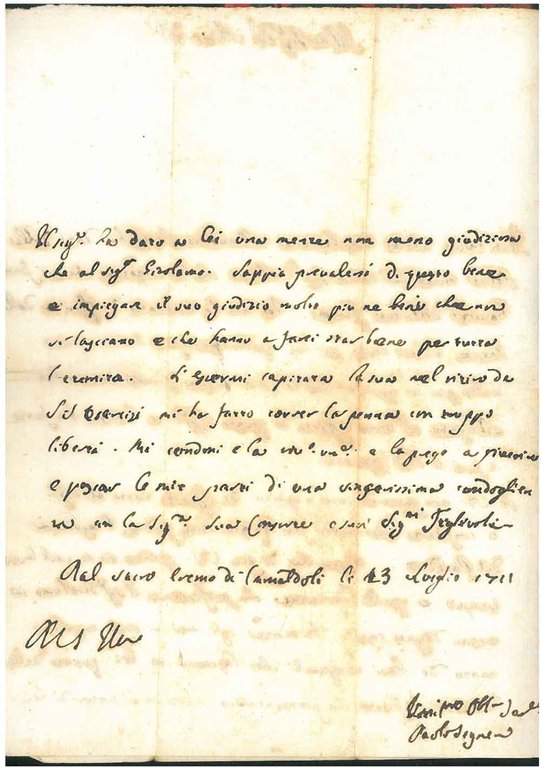 Il sig.r ha dato a lei una mente non meno giudiziosa
che al sig.r Girolamo. Sappia prevalersi di questo bene
e impiegar il suo giudizio molto piu ne beni che non
si lasciano e che hanno a farci star bene per tutta
l'eternità. L'essermi capitata la sua nel ritiro de
SS. Esercizi mi ha fatto correr la penna con troppo
libertà. Mi condoni e la e la prego a
e passar le mie parti di una sincerissima condoglien
za con la Sig.ra sua Consorte e suoi Sig.ri Figlivoli
Dal sacro Eremo di Camaldoli li 13 Luglio 1711
Di V.S. Ill.ma
Paolo Segneri